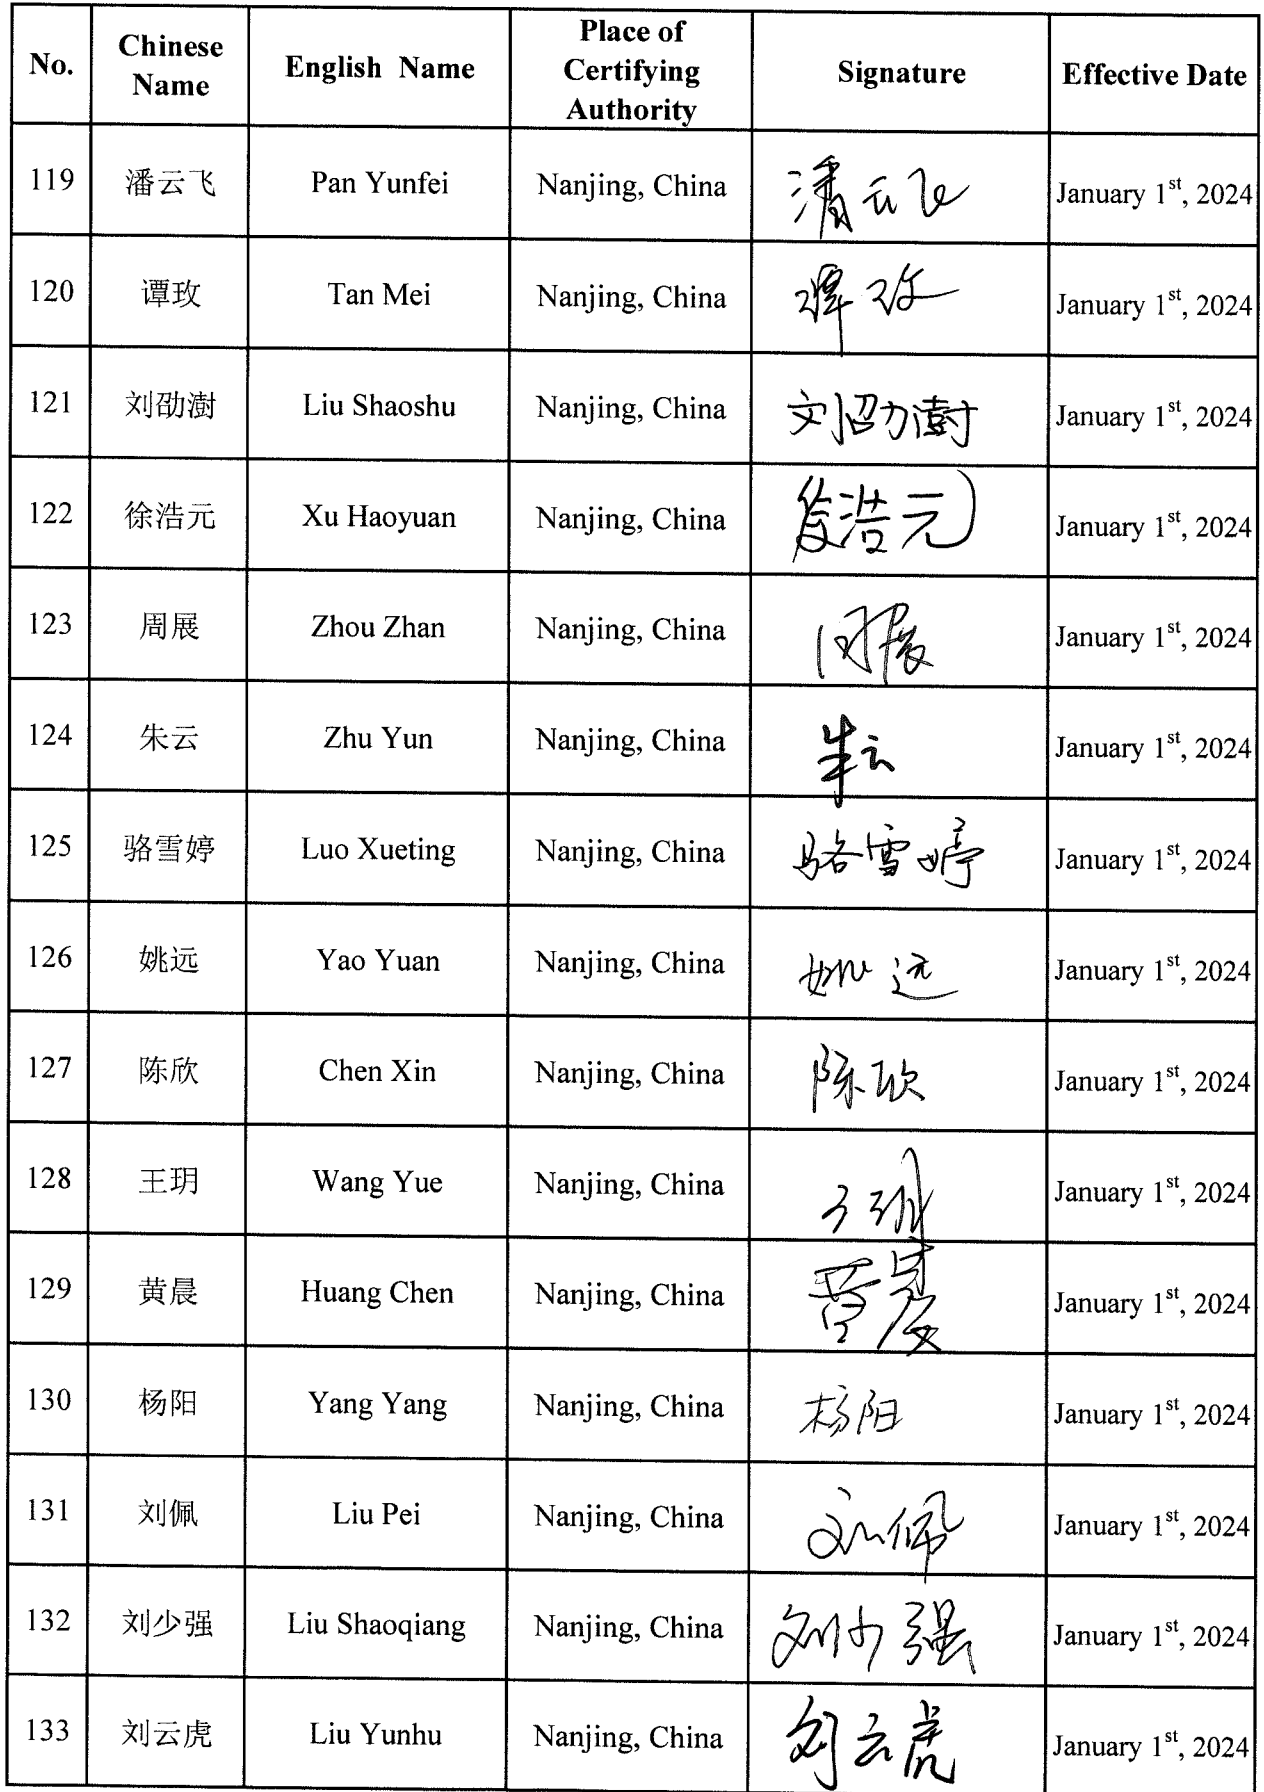 No. Chinese Name English Name Place of Certifying Authority Signature Effective Date
119 潘云飞 Pan Yunfei Nanjing, China 潘云飞 January 1st, 2024
120 谭玫 Tan Mei Nanjing, China 谭玫 January 1st, 2024
121 刘劭澍 Liu Shaoshu Nanjing, China 刘劭澍 January 1st, 2024
122 徐浩元 Xu Haoyuan Nanjing, China 徐浩元 January 1st, 2024
123 周展 Zhou Zhan Nanjing, China 周展 January 1st, 2024
124 朱云 Zhu Yun Nanjing, China 朱云 January 1st, 2024
125 骆雪婷 Luo Xueting Nanjing, China 骆雪婷 January 1st, 2024
126 姚远 Yao Yuan Nanjing, China 姚远 January 1st, 2024
127 陈欣 Chen Xin Nanjing, China 陈欣 January 1st, 2024
128 王玥 Wang Yue Nanjing, China 王玥 January 1st, 2024
129 黄晨 Huang Chen Nanjing, China 黄晨 January 1st, 2024
130 杨阳 Yang Yang Nanjing, China 杨阳 January 1st, 2024
131 刘佩 Liu Pei Nanjing, China 刘佩 January 1st, 2024
132 刘少强 Liu Shaoqiang Nanjing, China 刘少强 January 1st, 2024
133 刘云虎 Liu Yunhu Nanjing, China 刘云虎 January 1st, 2024